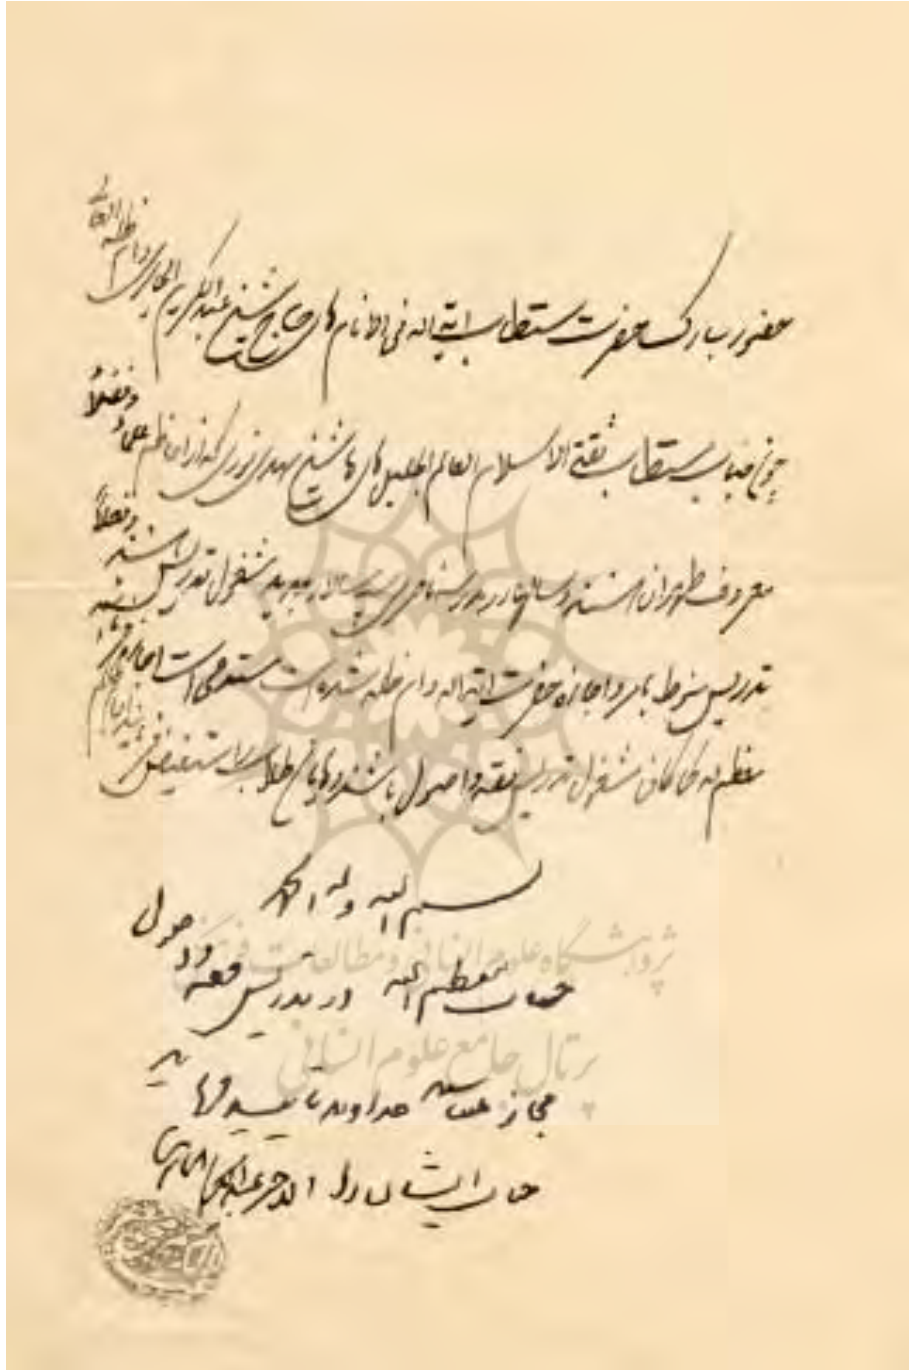 حضور مبارک حضرت مستطاب آیة الله فی الانام آقای حاج شیخ عبدالکریم الحایری دام ظله العالی
چون جناب مستطاب ثقة الاسلام العالم الجلیل آقای آقا شیخ مهدی نوری که از اعاظم علما و فضلاء
معروف طهران هستند و سالها در مدرسه ناصری سپهسالار جدید مشغول تدریس بوده و فعلاً
تدریس منوط بامر و اجازه حضرت آیة الله دام ظله شده است مستدعی است اجازه فرمائید
معظم له کما کان مشغول تدریس فقه و اصول باشند و طلاب استفیض
بسم الله وله الحمد
جناب معظم الیه در تدریس فقه و اصول
مجاز میباشند خداوند تایید فرماید
جناب ایشان را الاحقر عبدالکریم الحایری
پژوهشگاه علوم انسانی و مطالعات فرهنگی
پرتال جامع علوم انسانی